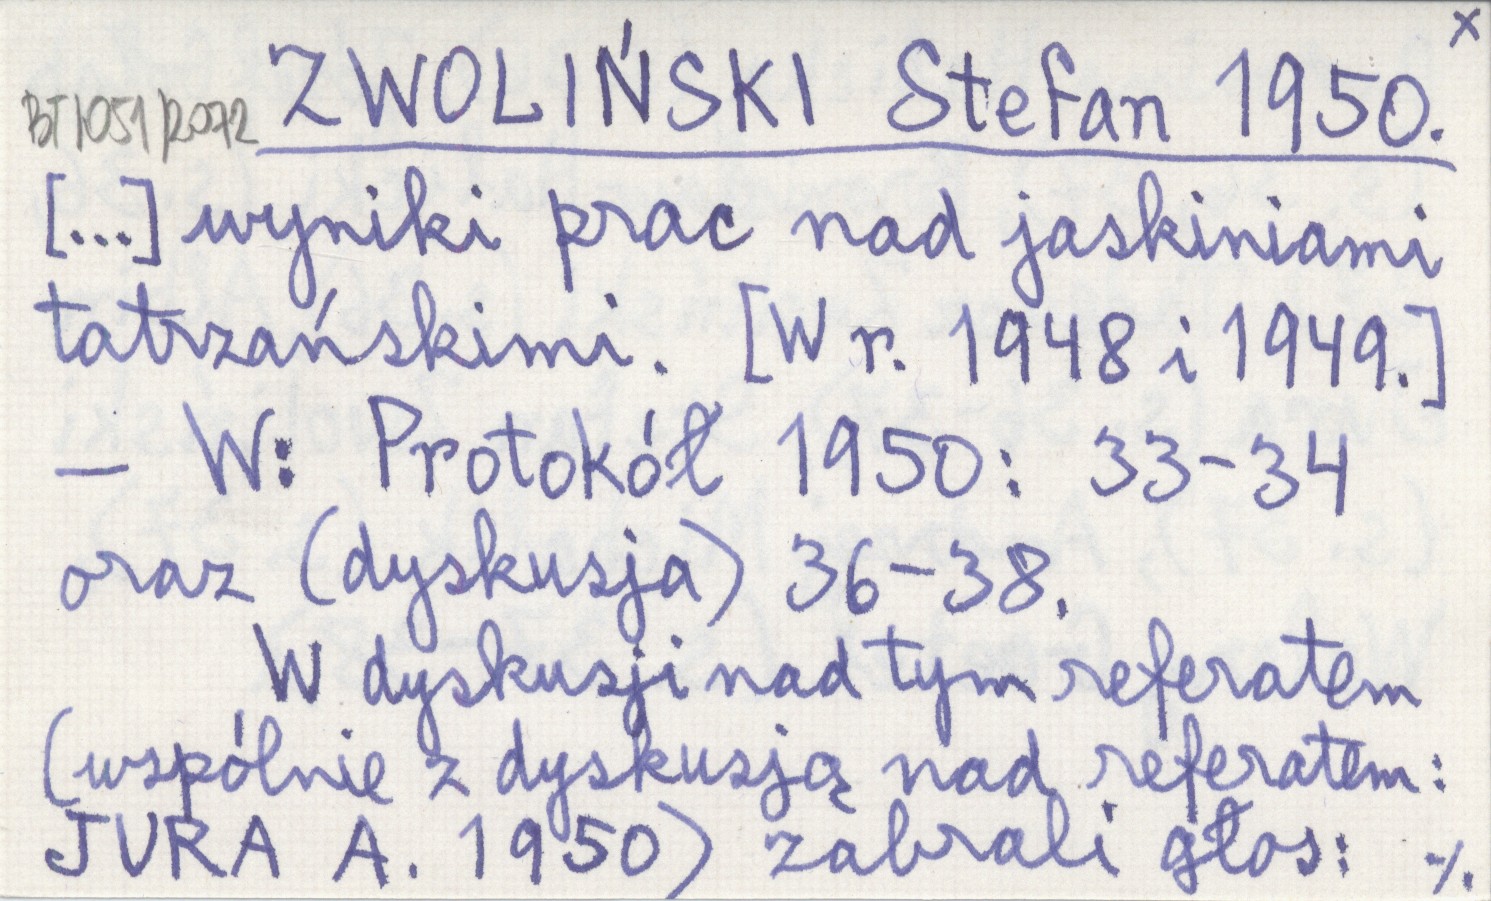 x
BT/051/2072 ZWOLIŃSKI Stefan 1950.
[...] wyniki prac nad jaskiniami
tatrzańskimi. [W r. 1948 i 1949.]
— W: Protokół 1950: 33-34
oraz (dyskusja) 36-38.
W dyskusji nad tym referatem
(wspólnie z dyskusją nad referatem:
JURA A. 1950) zabrali głos: ./.